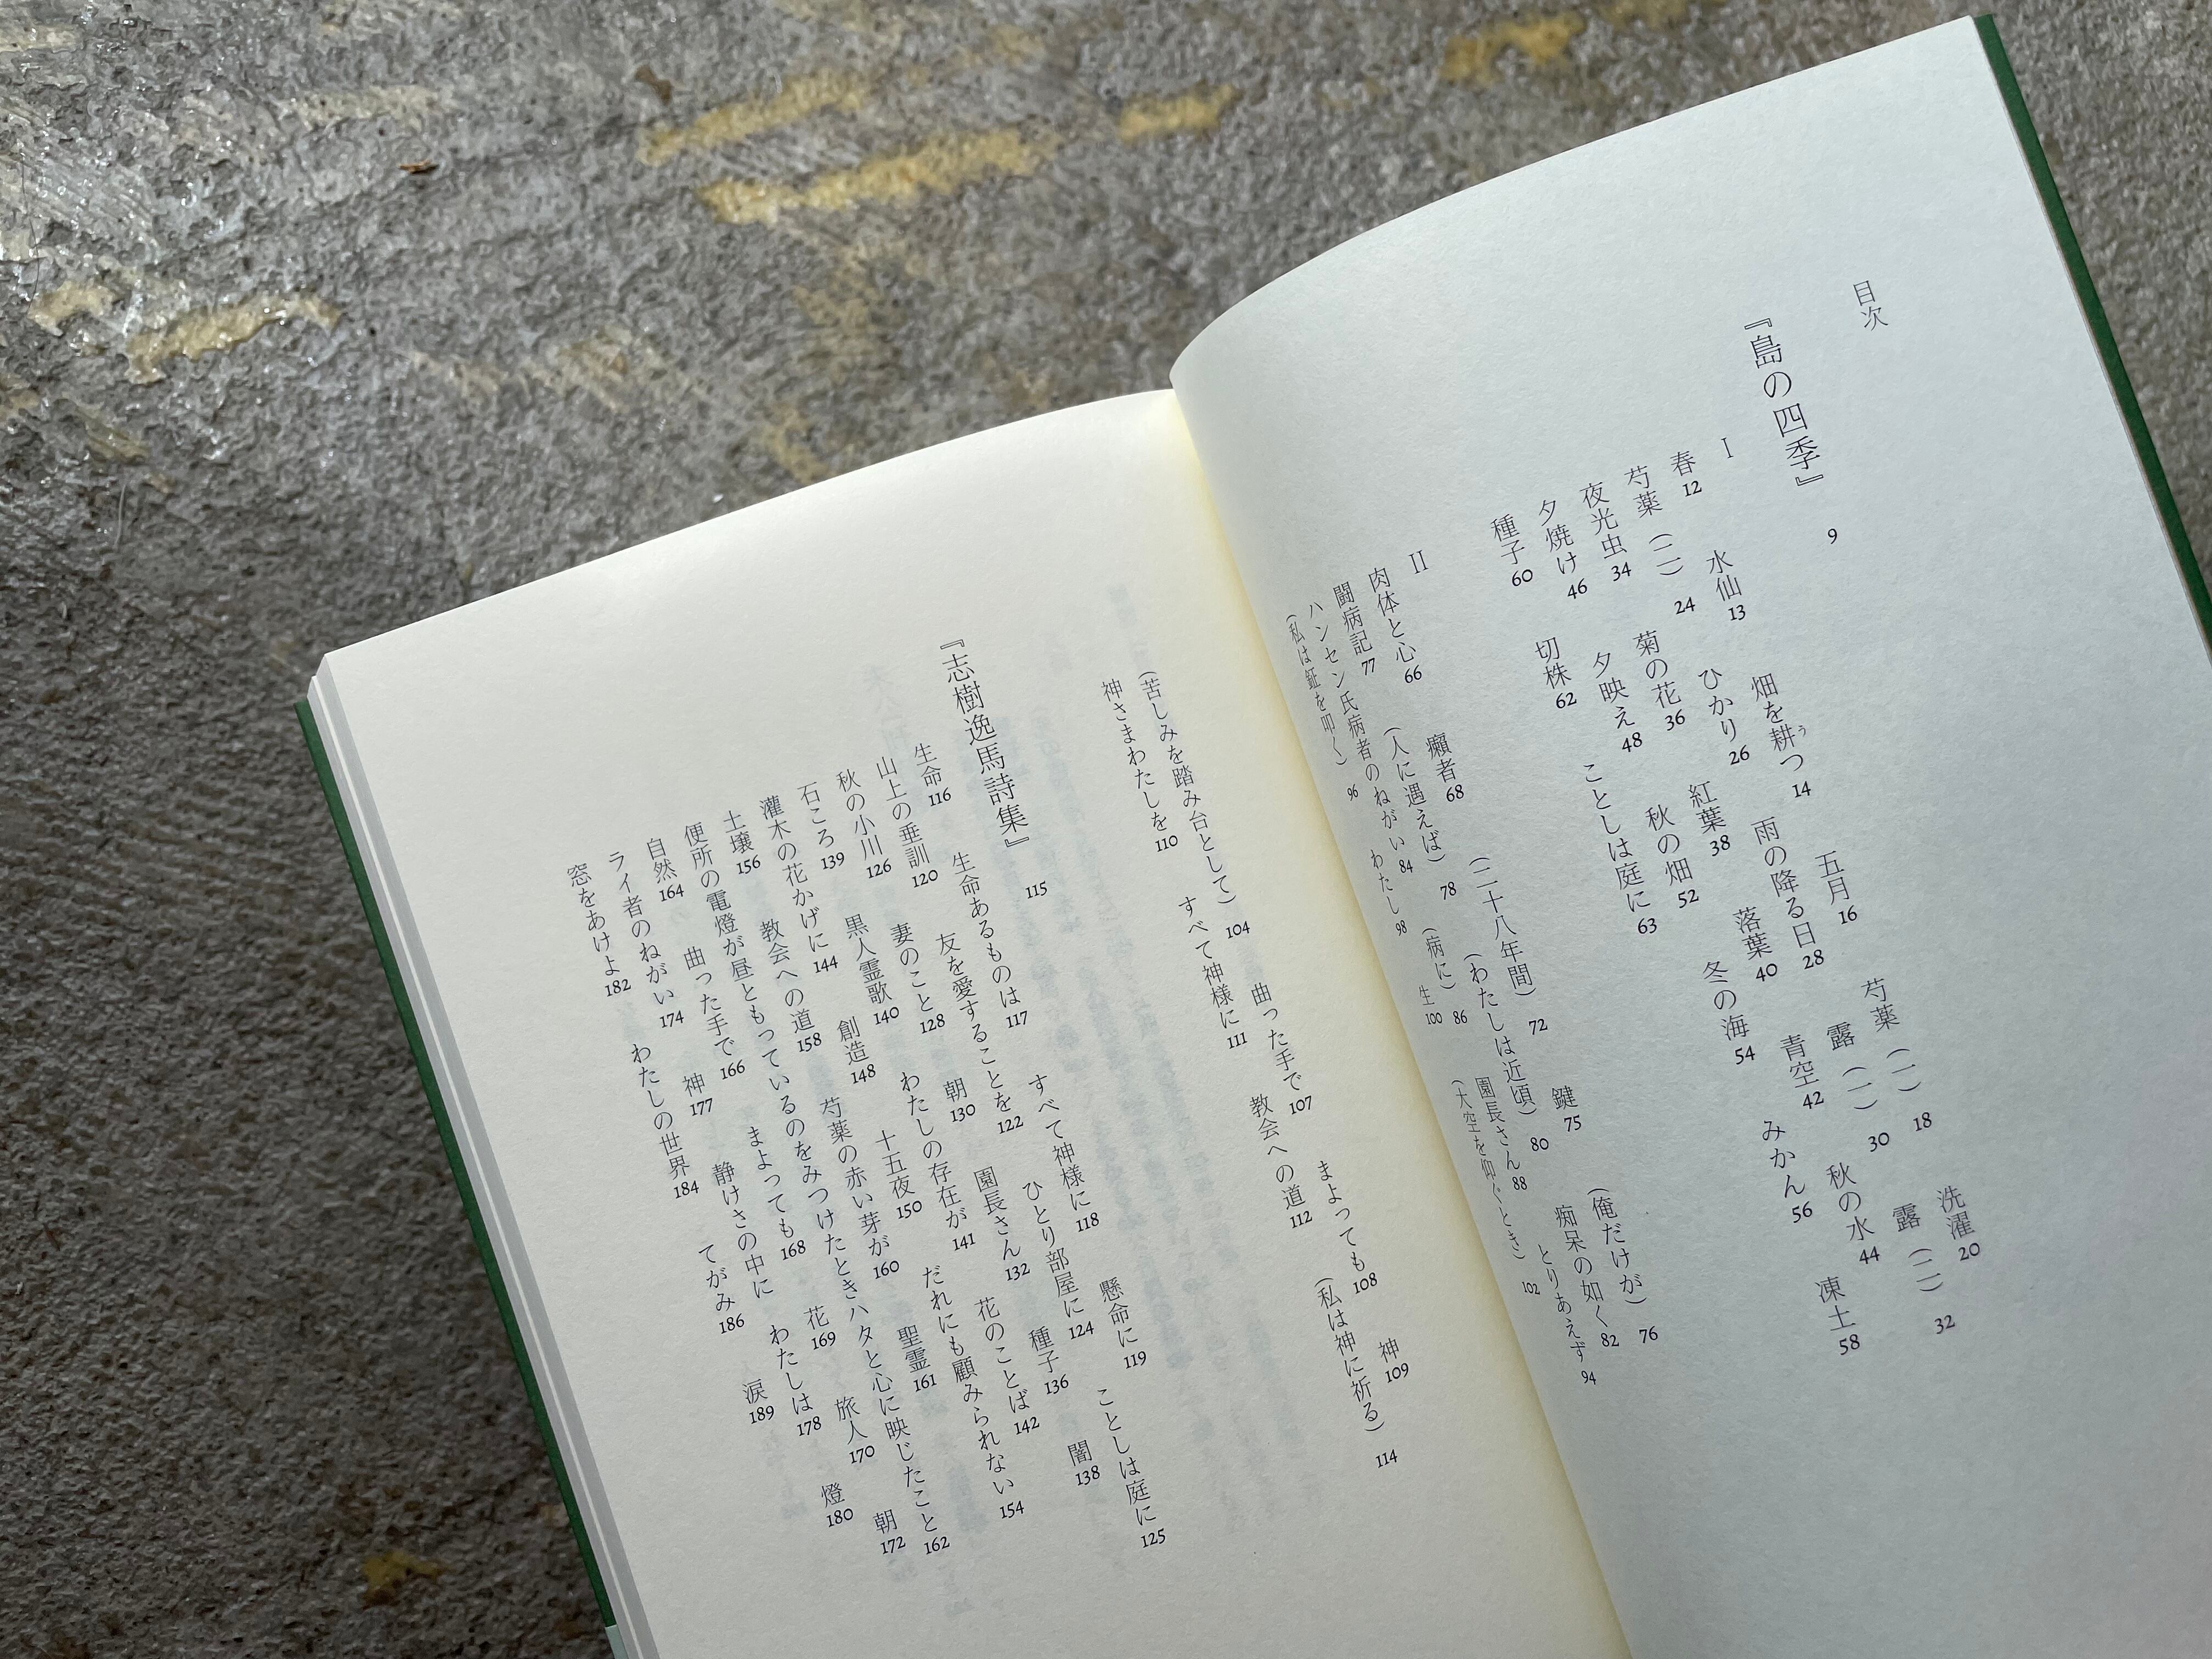 目次
『島の四季』 9
I
春 12 水仙 13 畑を耕つ 14 五月 16 芍薬(一) 18 洗濯 20
芍薬(二) 24 ひかり 26 雨の降る日 28 露(一) 30 露(二) 32
夜光虫 34 菊の花 36 紅葉 38 落葉 40 青空 42 秋の水 44
夕焼け 46 夕映え 48 秋の畑 52 冬の海 54 みかん 56 凍土 58
種子 60 切株 62 ことしは庭に 63
II
肉体と心 66 癩者 68 (二十八年間) 72 鍵 75 (俺だけが) 76
闘病記 77 (人に遇えば) 78 (わたしは近頃) 80 痴呆の如く 82
ハンセン氏病者のねがい 84 (病に) 86 園長さん 88 とりあえず 94
(私は鉦を叩く) 96 わたし 98 生 100 (大空を仰ぐとき) 102
(苦しみを踏み台として) 104 曲った手で 107 まよっても 108 神 109
神さまわたしを 110 すべて神様に 111 教会への道 112 (私は神に祈る) 114
『志樹逸馬詩集』 115
生命 116 生命あるものは 117 すべて神様に 118 懸命に 119
山上の垂訓 120 友を愛することを 122 ひとり部屋に 124 ことしは庭に 125
秋の小川 126 妻のこと 128 朝 130 園長さん 132 種子 136 闇 138
石ころ 139 黒人霊歌 140 わたしの存在が 141 花のことば 142
灌木の花かげに 144 創造 148 十五夜 150 だれにも顧みられない 154
土壌 156 教会への道 158 芍薬の赤い芽が 160 聖霊 161
便所の電燈が昼ともっているのをみつけたときハタと心に映じたこと 162
自然 164 曲った手で 166 まよっても 168 花 169 旅人 170 朝 172
ライ者のねがい 174 神 177 静けさの中に わたしは 178 燈 180
窓をあけよ 182 わたしの世界 184 てがみ 186 涙 189